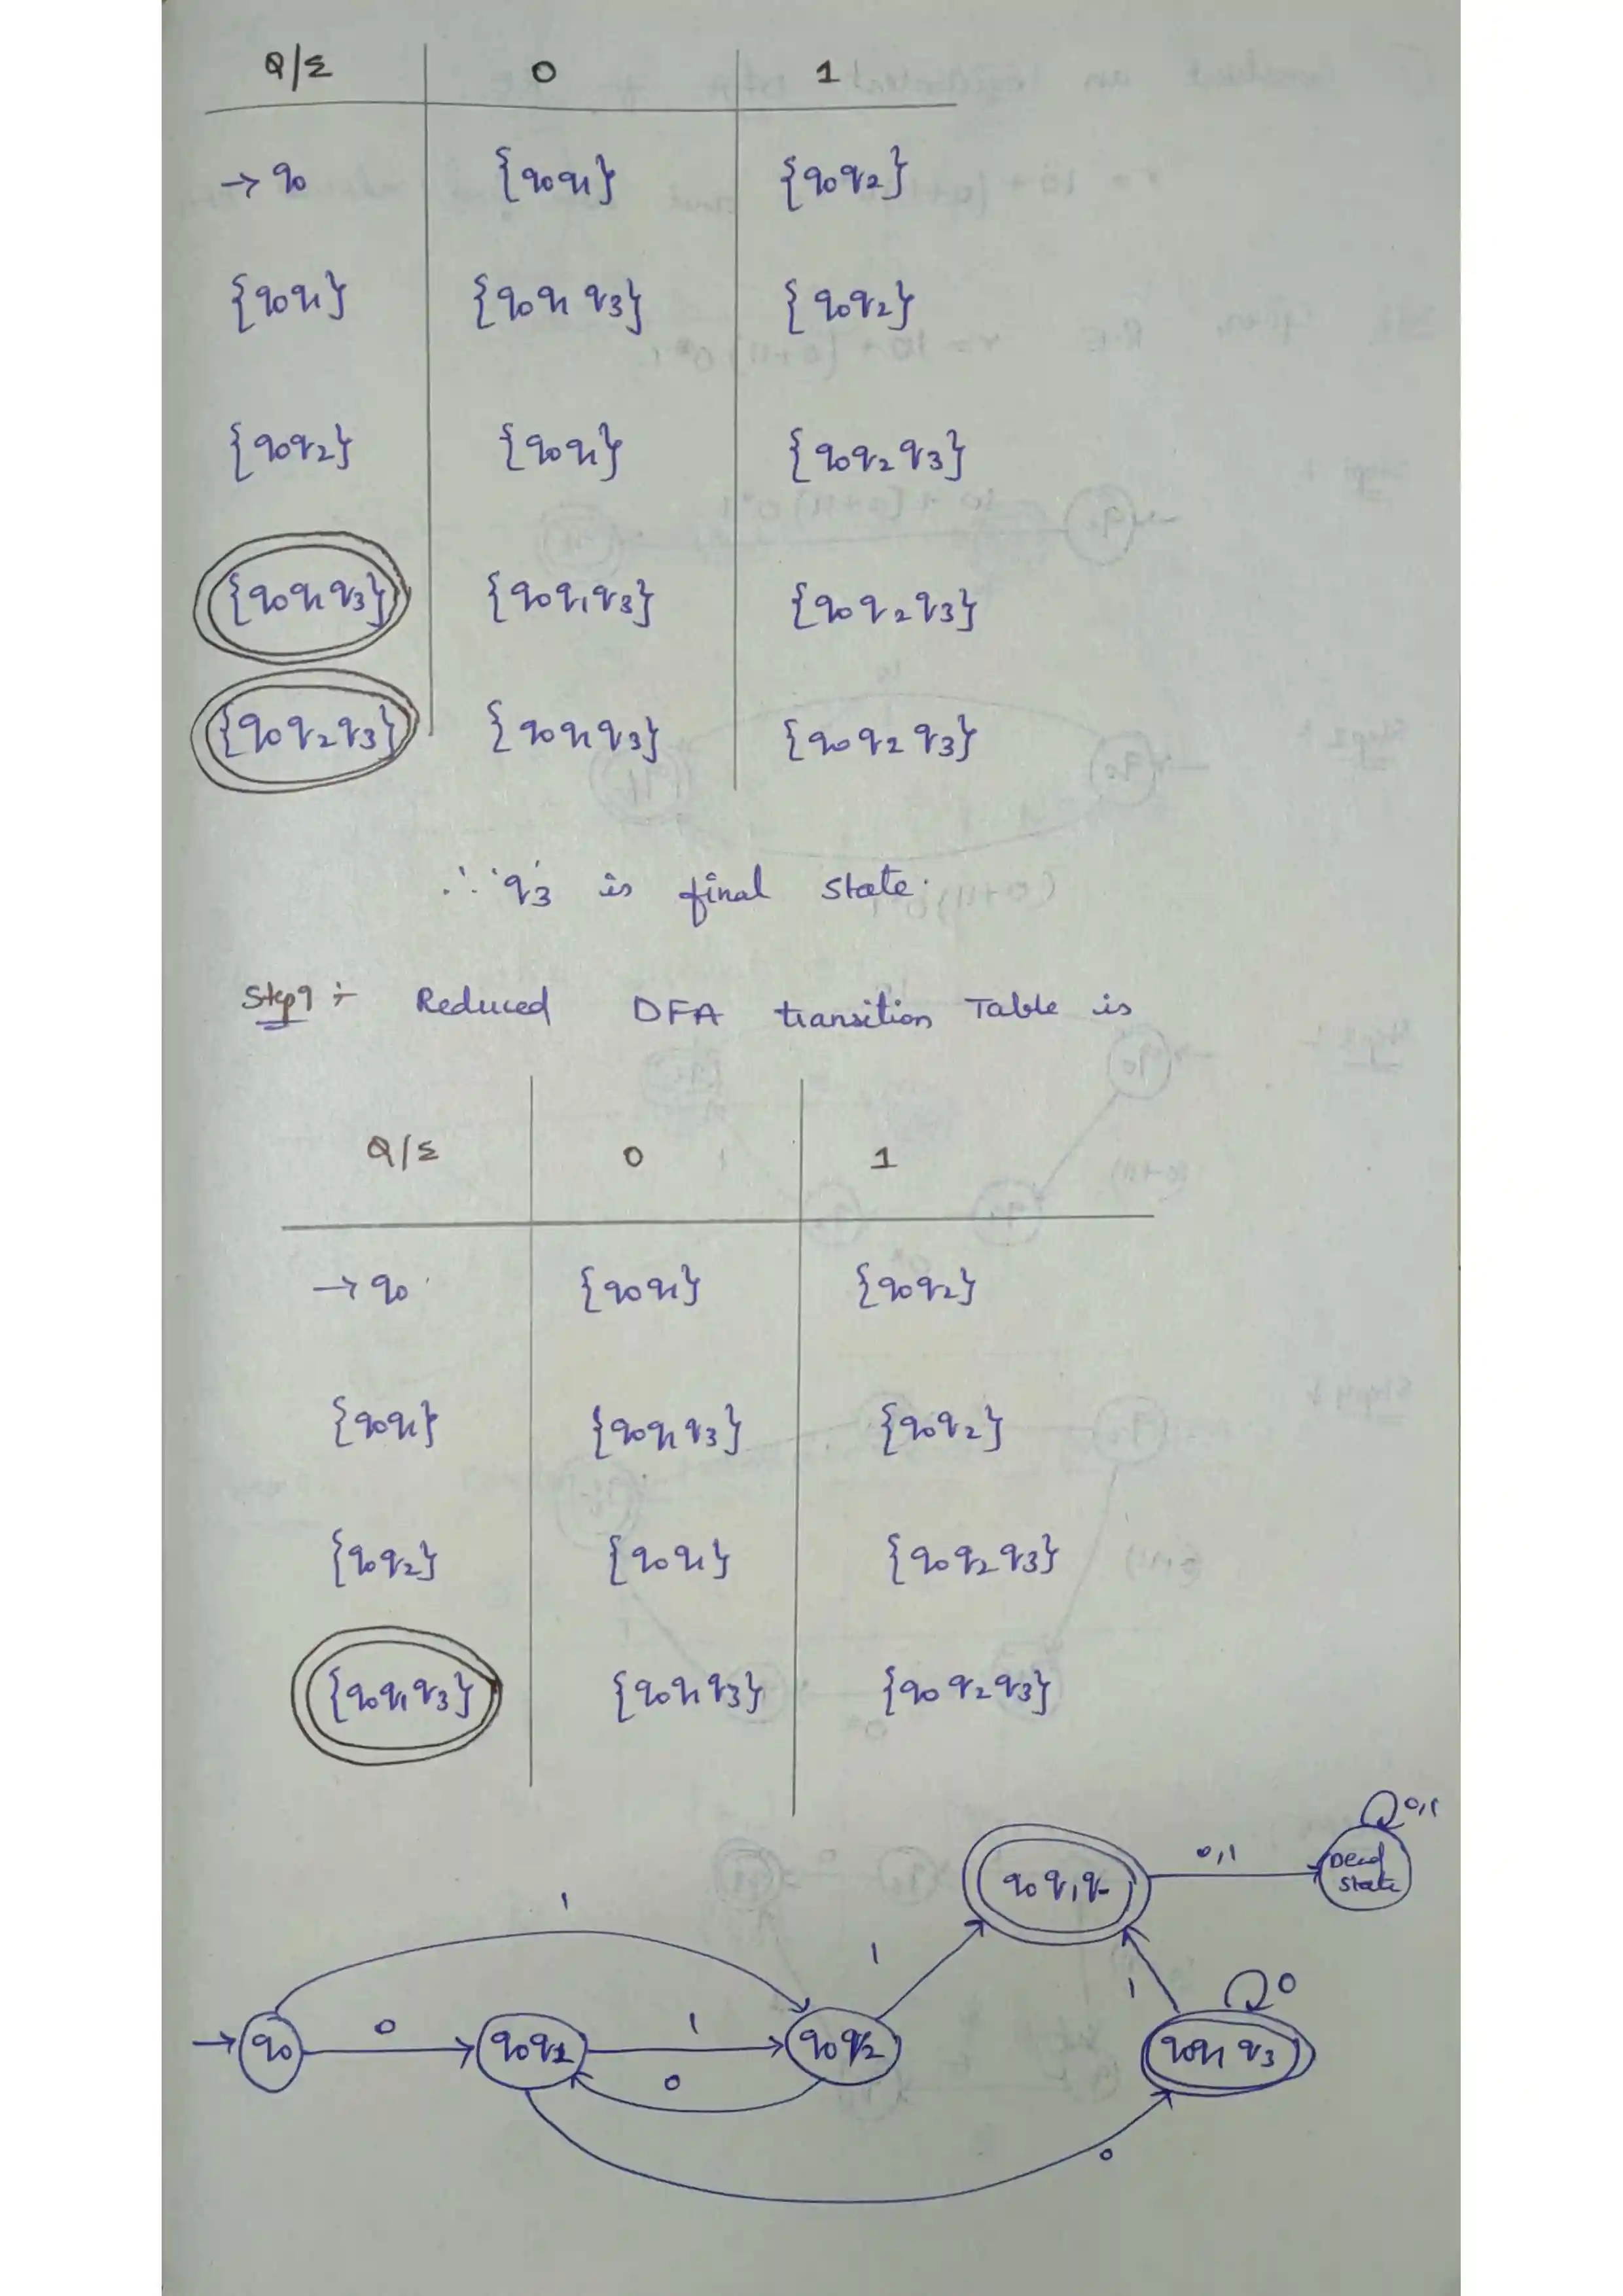 Q/Σ 0 1
→ q0 {q0q1} {q0q2}
{q0q1} {q0q1q3} {q0q2}
{q0q2} {q0q1} {q0q2q3}
{q0q1q3} {q0q1q3} {q0q2q3}
{q0q2q3} {q0q1q3} {q0q2q3}
∴ 'q3' is final state.
Step9 :- Reduced DFA transition Table is
Q/Σ 0 1
→ q0 {q0q1} {q0q2}
{q0q1} {q0q1q3} {q0q2}
{q0q2} {q0q1} {q0q2q3}
{q0q1q3} {q0q1q3} {q0q2q3}
0,1
0,1
Dead
state
1
1
1
0
→ q0 0 q0q1 1 q0q2 q0q1q3
0
0